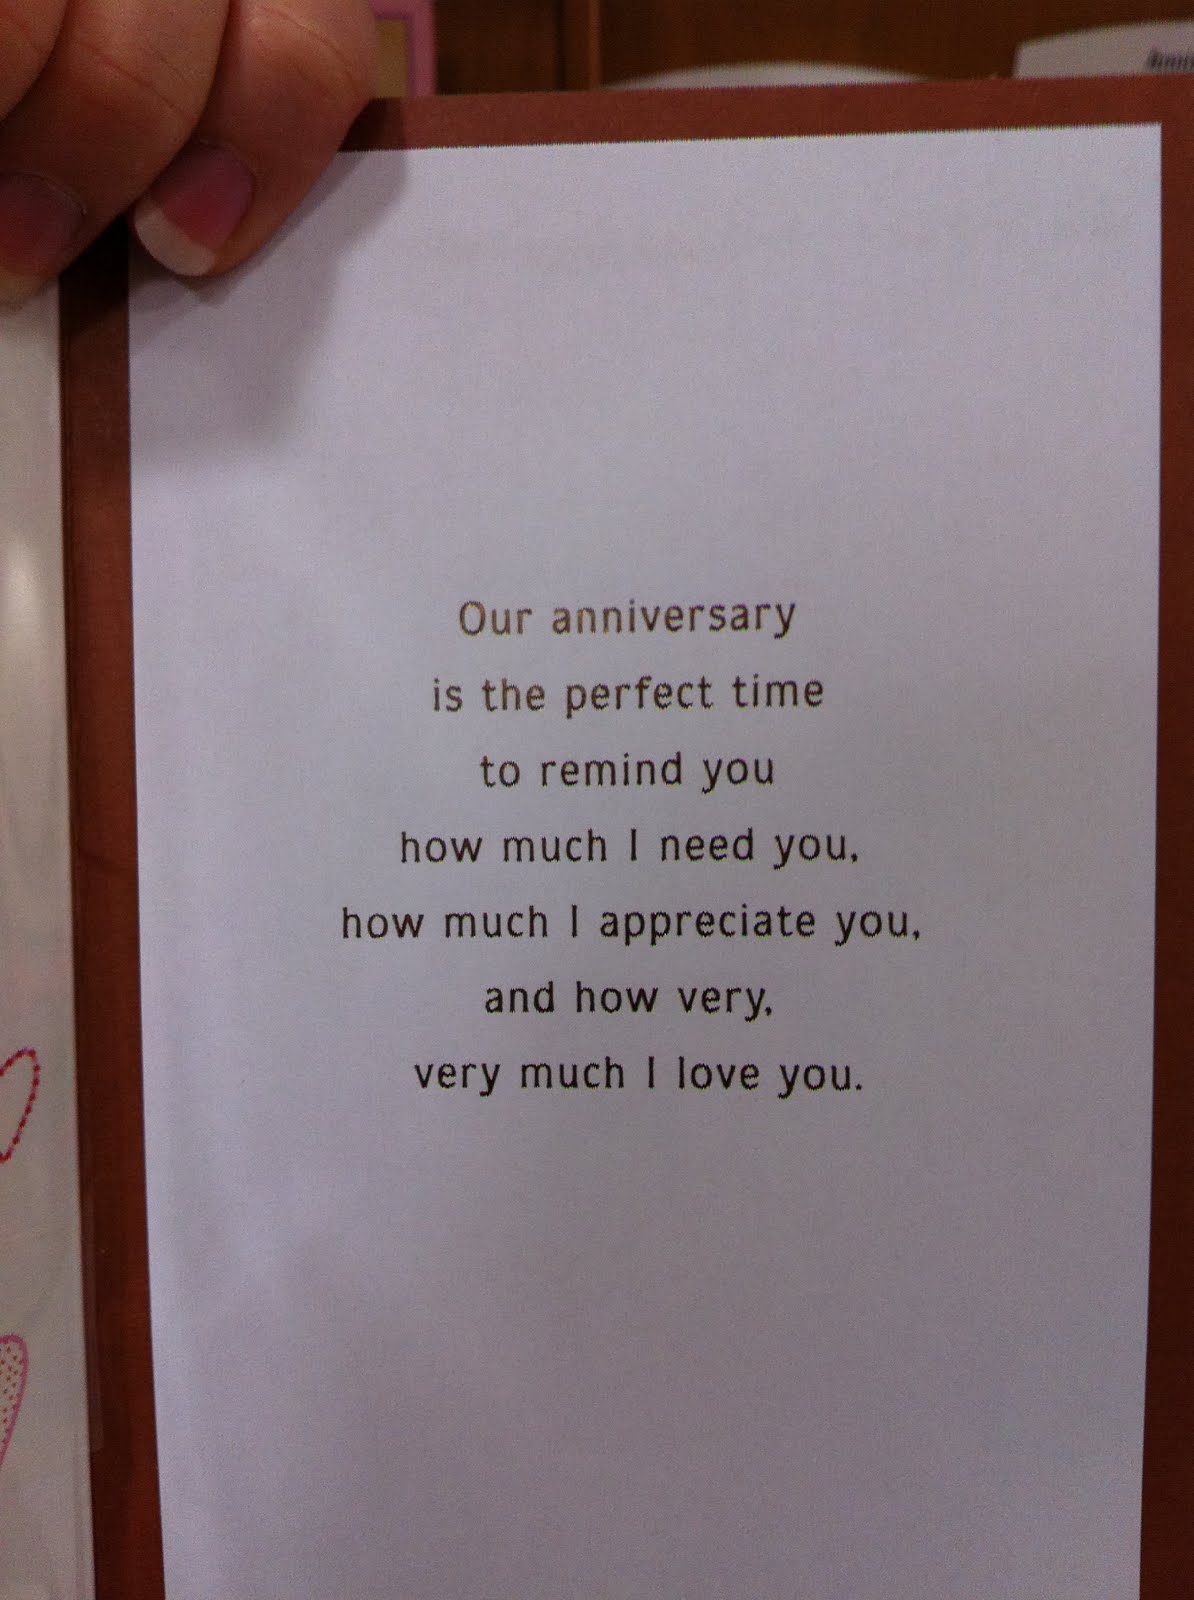 Our anniversary
is the perfect time
to remind you
how much I need you,
how much I appreciate you,
and how very,
very much I love you.